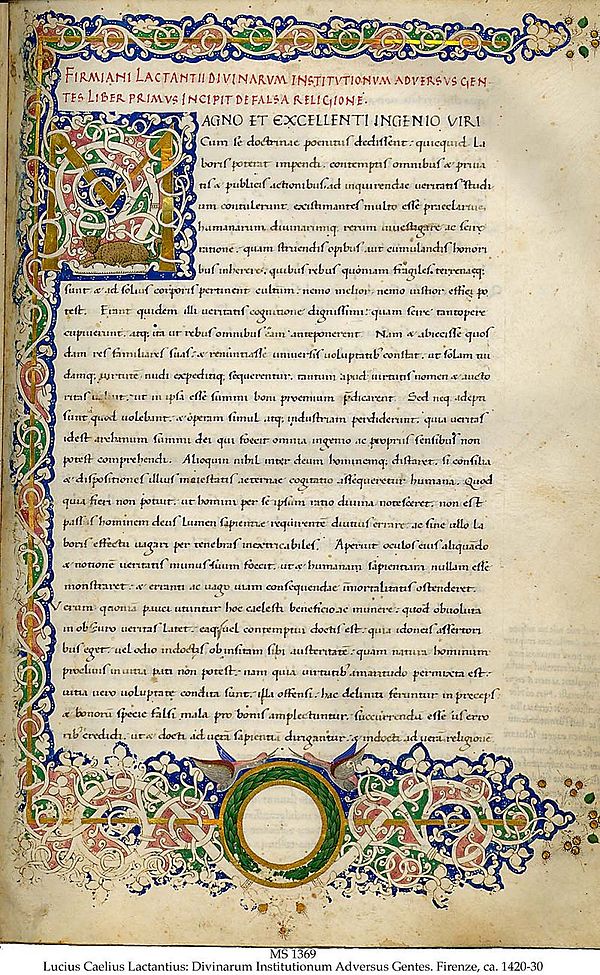 FIRMIANI LACTANTII DIVINARVM INSTITVTIONVM ADVERSVS GEN
TES LIBER PRIMVS INCIPIT DE FALSA RELIGIONE.
MAGNO ET EXCELLENTI INGENIO VIRI
Cum se doctrinae poenitus dedissent: quicquid la
boris poterat impendi, contemptis omnibus & priua
tis & publicis actionibus, ad inquirendae veritatis studi
um contulerunt, existimantes multo esse praeclarius,
humanarum diuinarumq; rerum inuestigare ac scire
ratione, quam struendis opibus, aut cumulandis honori
bus inherere, quibus rebus quoniam fragiles, terrenaeq;
sunt & ad solius corporis pertinent cultum: nemo melior, nemo iustior effici po
test. Erant quidem illi veritatis cognitione dignissimi: quam scire tantopere
cupiuerunt, atq; ita ut rebus omnibus eam anteponerent. Nam & abiecisse quos
dam res familiares suas: & renuntiasse uniuersis voluptatib' constat, ut solam nu
damq; virtutē nudi expeditiq; sequerentur, tantum apud virtutis nomen & aucto
ritas valuit, ut in ipsa esse summi boni proemium p̄dicarent. Sed neq adepti
sunt quod volebant, & operam simul atq; industriam perdiderunt, quia veritas
idest archanum summi dei qui foecit omnia ingenio ac propriis sensibus non
potest comprehendi. Alioquin nihil inter deum hominemq; distaret, si consilia
& dispositiones illius maiestatis aeternae cogitatio assequeretur humana. Quod
quia fieri non potuit, ut homini per se ipsum ratio diuina notesceret, non est
passus hominem deus lumen sapientiae requirentē diutius errare, ac sine ullo la
boris effectu uagari per tenebras inextricabiles. Aperuit oculos eius aliquādo
& notionē veritatis munus suum foecit, ut & humanam sapientiam nullam esse
monstraret, & erranti ac vago viam consequendae īmortalitatis ostenderet.
Verum quoniā pauci utuntur hoc caelesti beneficio ac munere, quod obuoluta
in obscuro veritas latet, eaq; uel contemptui doctis est, quia idoneis assertori
bus eget, uel odio indoctis ob insitam sibi austeritatē, quam natura hominum
procliuis in uitia pati non potest, nam quia virtutib' amaritudo permixta est,
vitia vero voluptate condita sunt, illa offensi, hac deliniti feruntur in preceps
& bonorū specie falsi mala pro bonis amplectuntur, succurrendū esse iis erro
rib' credidi, ut & docti ad verā sapientiā dirigantur & indocti ad verā religionē
MS 1369
Lucius Caelius Lactantius: Divinarum Institutionum Adversus Gentes. Firenze, ca. 1420-30